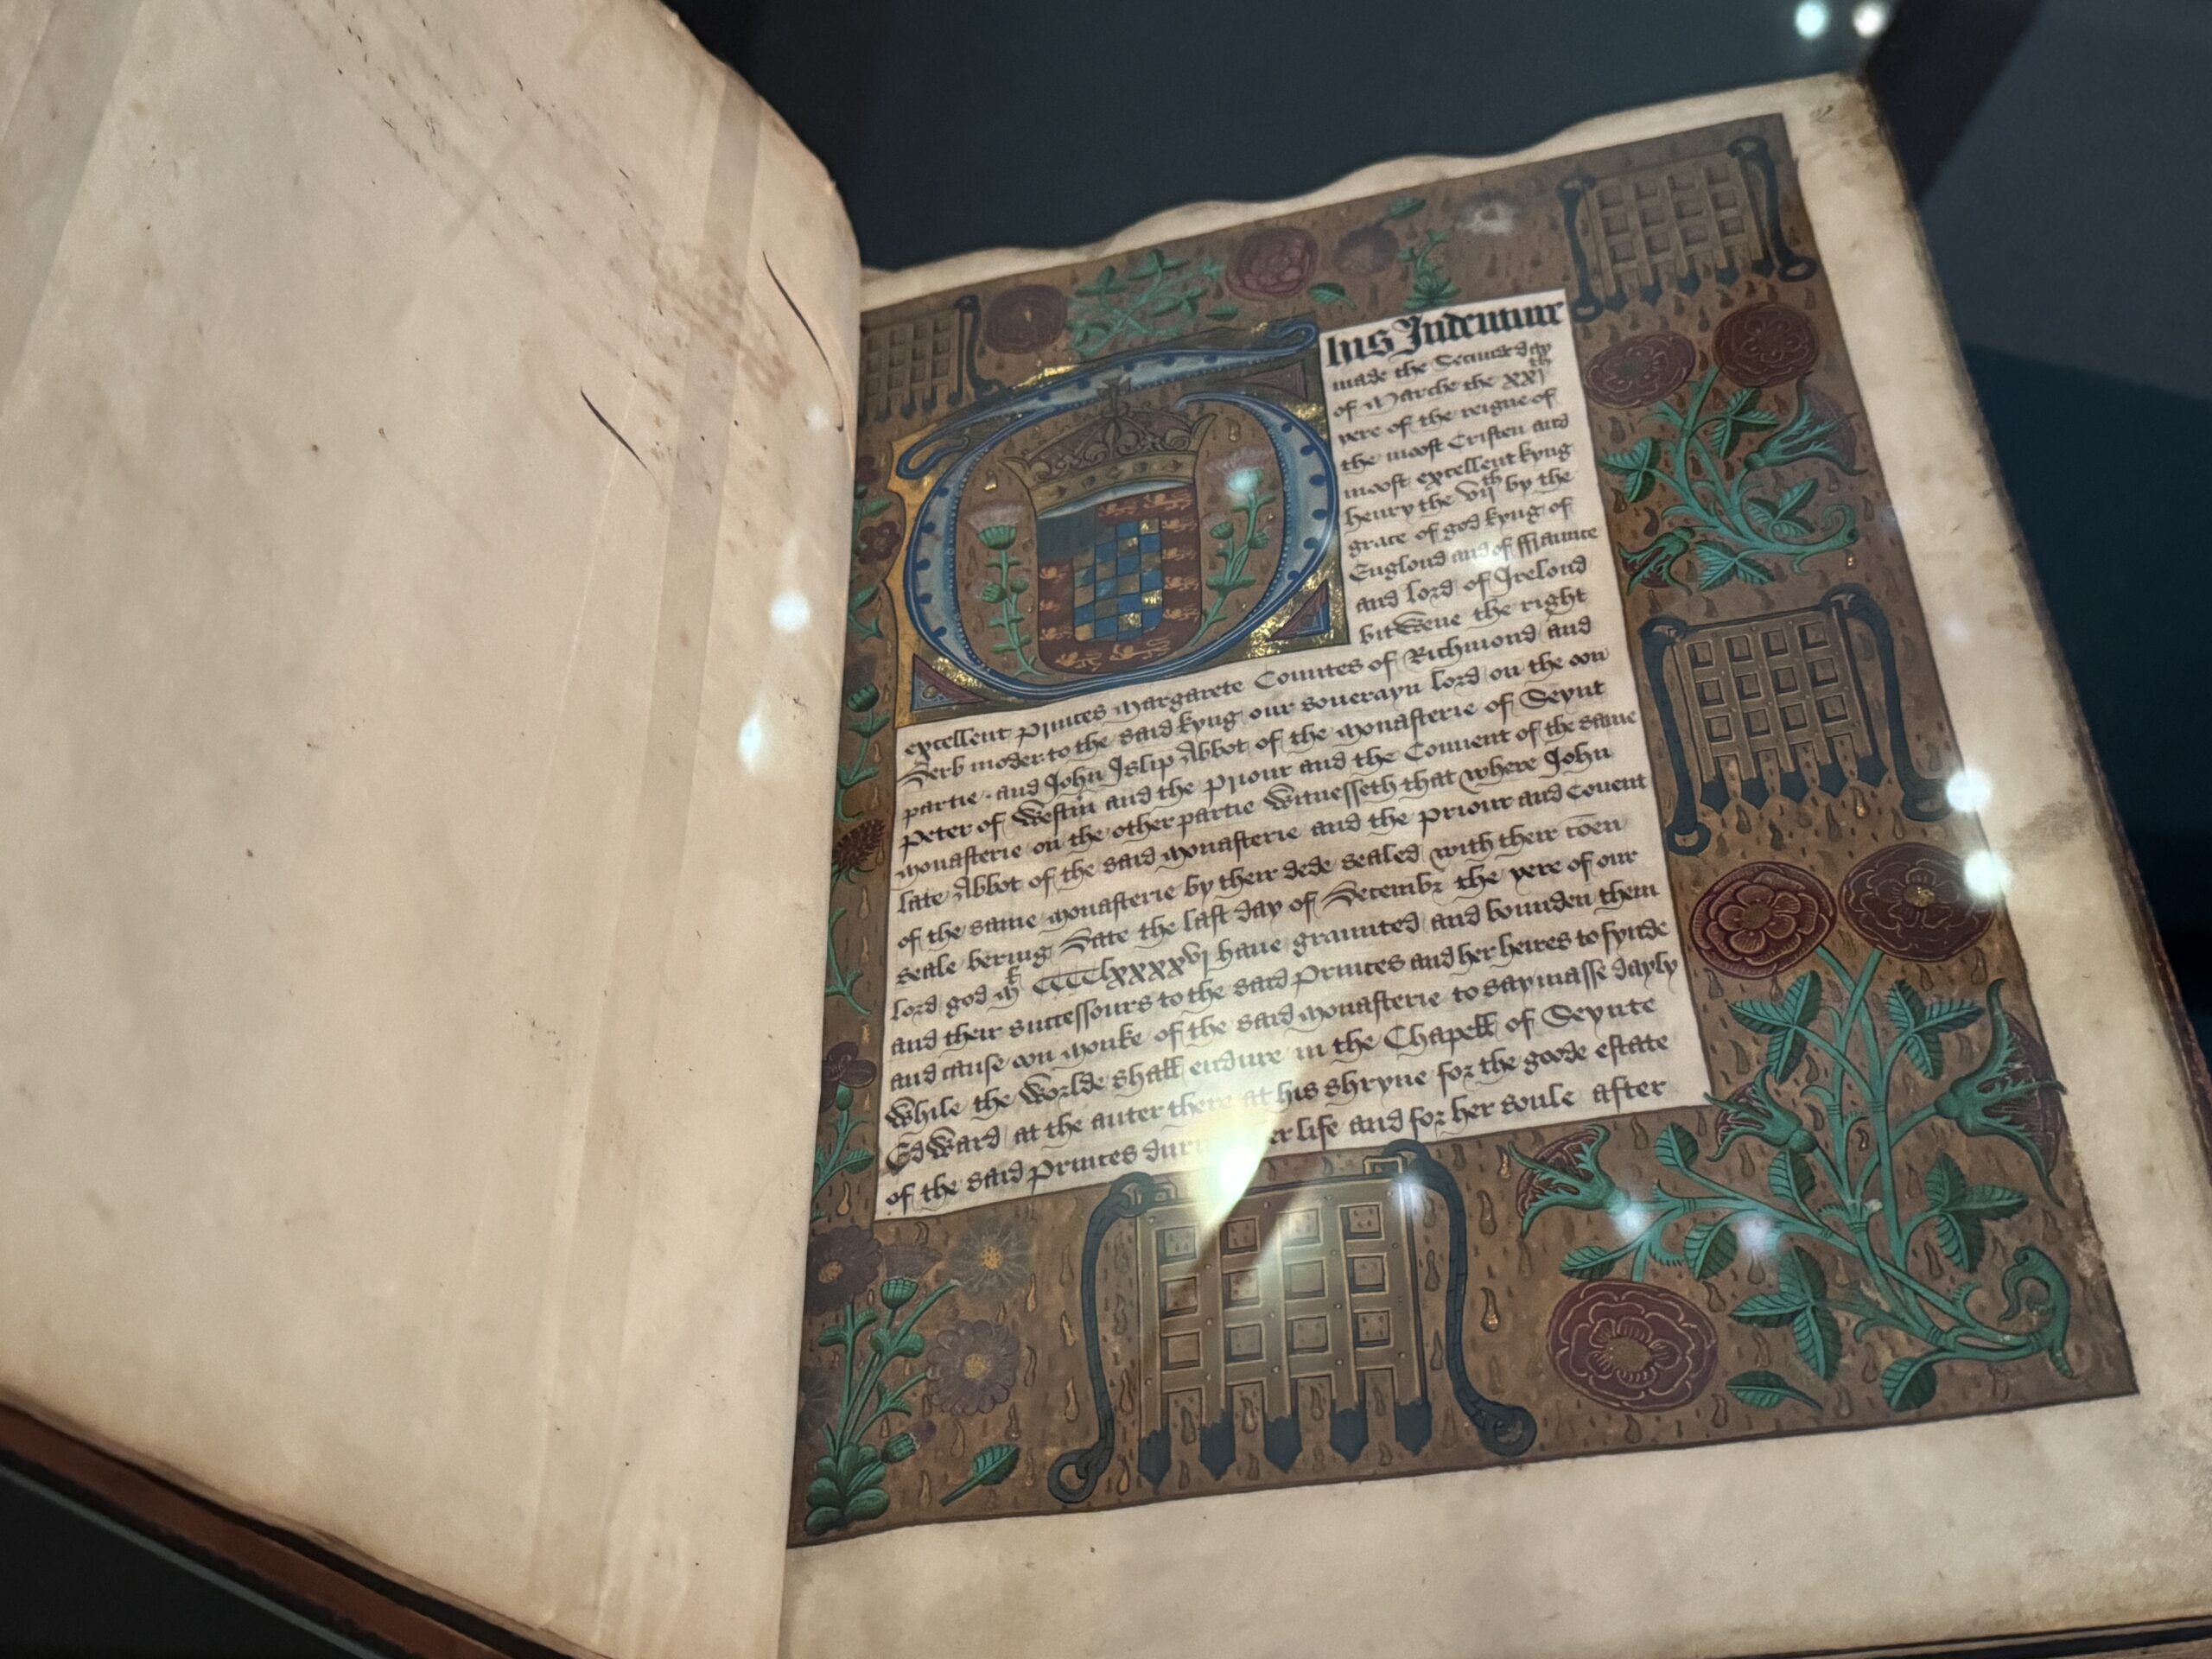 This Indenture
made the Secund day
of Marche the xxjth
yere of the reigne of
the moost Cristen and
moost excellent kyng
henry the vijth by the
grace of god kyng of
Englond and of ffraunce
and lord of Irelond
bitwene the right
excellent Princes Margarete Countes of Richmond and
Derb moder to the said kyng our souerayn lord on the oon
partie and John Islip Abbot of the monasterie of Seynt
Peter of Westm and the Priour and the Conuent of the same
monasterie on the other partie Witnesseth that where John
late Abbot of the said monasterie and the Priour and Couent
of the same monasterie by their dede sealed with their coen
seale bering Date the last day of Decembr the yere of our
lord god m CCCClxxxxvj haue graunted and bounden them
and their successours to the said Princes and her heires to fynde
and cause oon monke of the said monasterie to say masse dayly
While the Worlde shall endure in the Chapell of Seynte
Edward at the auter there at his shryne for the goode estate
of the said Princes during her life and for her soule after